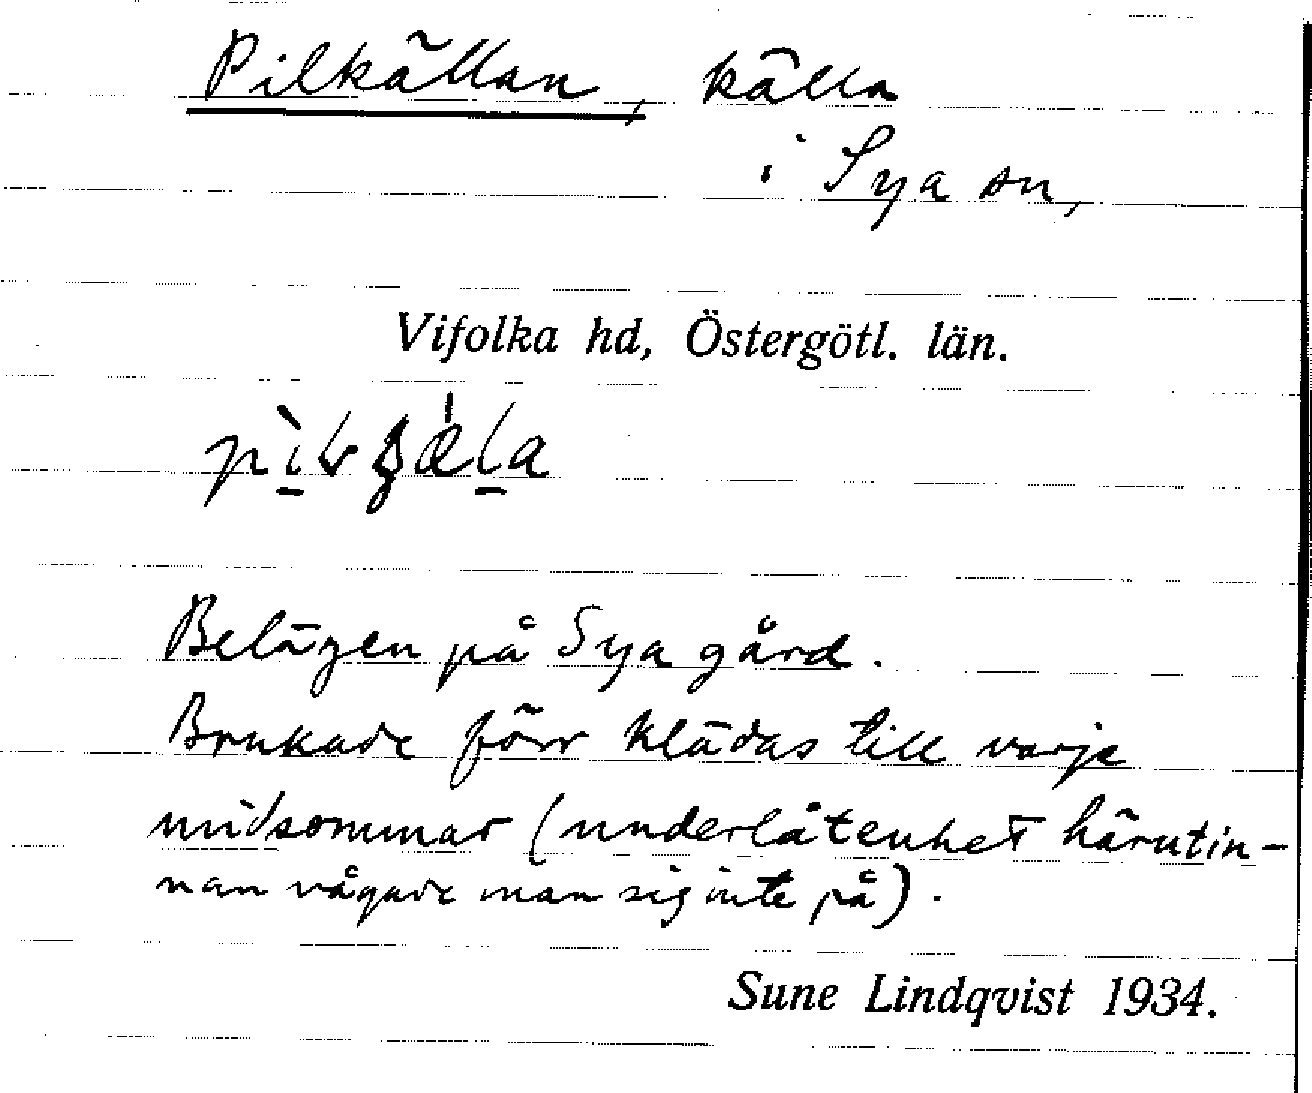 Pilkällan, källa
i Sya sn,
Vifolka hd, Östergötl. län.
Belägen på Sya gård.
Brukade förr klädas till varje
midsommar (underlåtenhet härutin-
nan vågade man sig inte på).
Sune Lindqvist 1934.